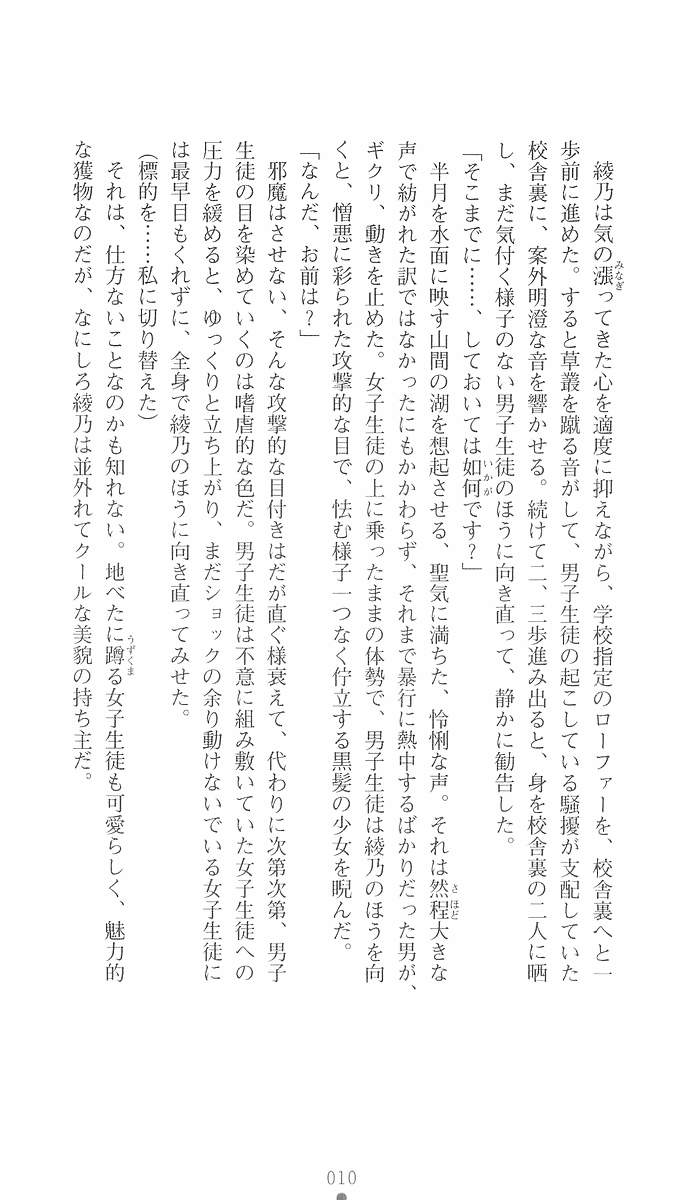 綾乃は気の漲ってきた心を適度に抑えながら、学校指定のローファーを、校舎裏へと一
歩前に進めた。すると草叢を蹴る音がして、男子生徒の起こしている騒擾が支配していた
校舎裏に、案外明澄な音を響かせる。続けて二、三歩進み出ると、身を校舎裏の二人に晒
し、まだ気付く様子のない男子生徒のほうに向き直って、静かに勧告した。
「そこまでに……、しておいては如何です？」
半月を水面に映す山間の湖を想起させる、聖気に満ちた、怜悧な声。それは然程大きな
声で紡がれた訳ではなかったにもかかわらず、それまで暴行に熱中するばかりだった男が、
ギクリ、動きを止めた。女子生徒の上に乗ったままの体勢で、男子生徒は綾乃のほうを向
くと、憎悪に彩られた攻撃的な目で、怯む様子一つなく佇立する黒髪の少女を睨んだ。
「なんだ、お前は？」
邪魔はさせない、そんな攻撃的な目付きはだが直ぐ様衰えて、代わりに次第次第、男子
生徒の目を染めていくのは嗜虐的な色だ。男子生徒は不意に組み敷いていた女子生徒への
圧力を緩めると、ゆっくりと立ち上がり、まだショックの余り動けないでいる女子生徒に
は最早目もくれずに、全身で綾乃のほうに向き直ってみせた。
（標的を……私に切り替えた）
それは、仕方ないことなのかも知れない。地べたに蹲る女子生徒も可愛らしく、魅力的
な獲物なのだが、なにしろ綾乃は並外れてクールな美貌の持ち主だ。
010